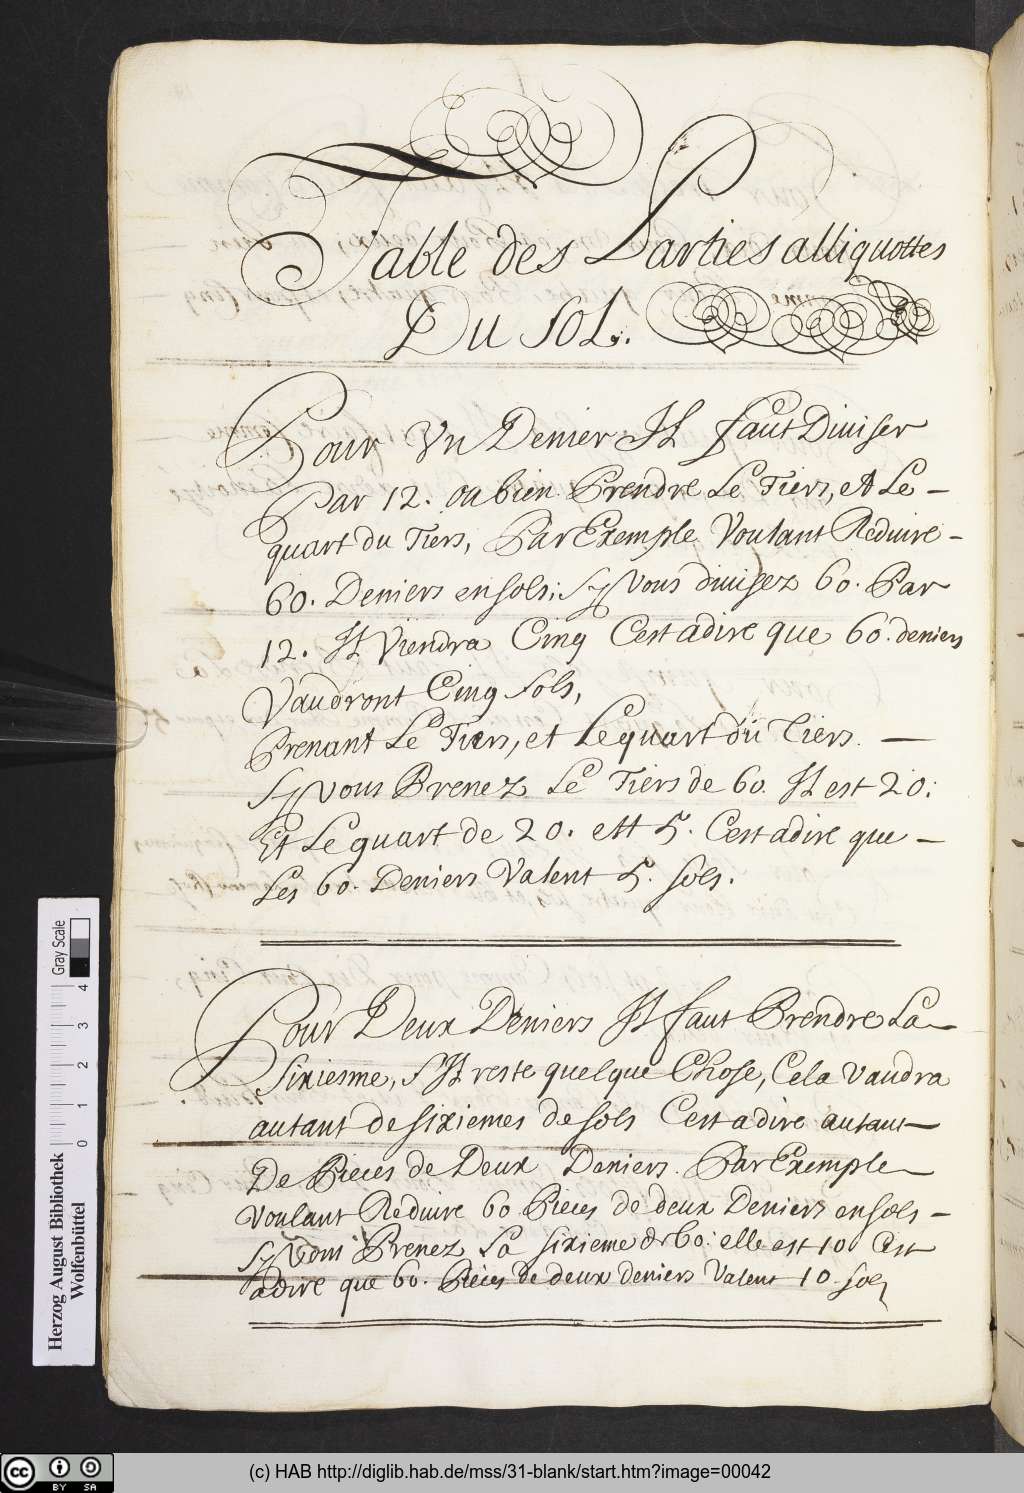 Table des Parties alliquottes
Du sol.
Pour Vn Denier Il faut Diuiser
Par 12. ou bien Prendre Le Tiers, et Le -
quart du Tiers, Par Exemple Voulant Reduire -
60. Deniers en sols; Sy Vous diuisez 60. Par
12. Il Viendra Cinq Cest adire que 60. deniers
Vaudront Cinq sols,
Prenant Le Tiers, et Le quart du Tiers. —
Sy vous Prenez Le Tiers de 60. Il est 20;
Et Le quart de 20. est 5. Cest adire que —
Les 60. Deniers Valent 5. sols.
Pour Deux Deniers Il faut Prendre La
Sixiesme, s'Il reste quelque Chose, Cela Vaudra
autant de sixiemes de sols Cest adire autant
De Pieces de Deux Deniers. Par Exemple
Voulant Reduire 60 Pieces de deux Deniers en sols -
Sy Vous Prenez La sixieme de 60: elle est 10 Cest
adire que 60. Pièces de deux deniers Valent 10. sols
Gray Scale
0 1 2 3 4
Herzog August Bibliothek
Wolfenbüttel
cc BY SA
(c) HAB http://diglib.hab.de/mss/31-blank/start.htm?image=00042